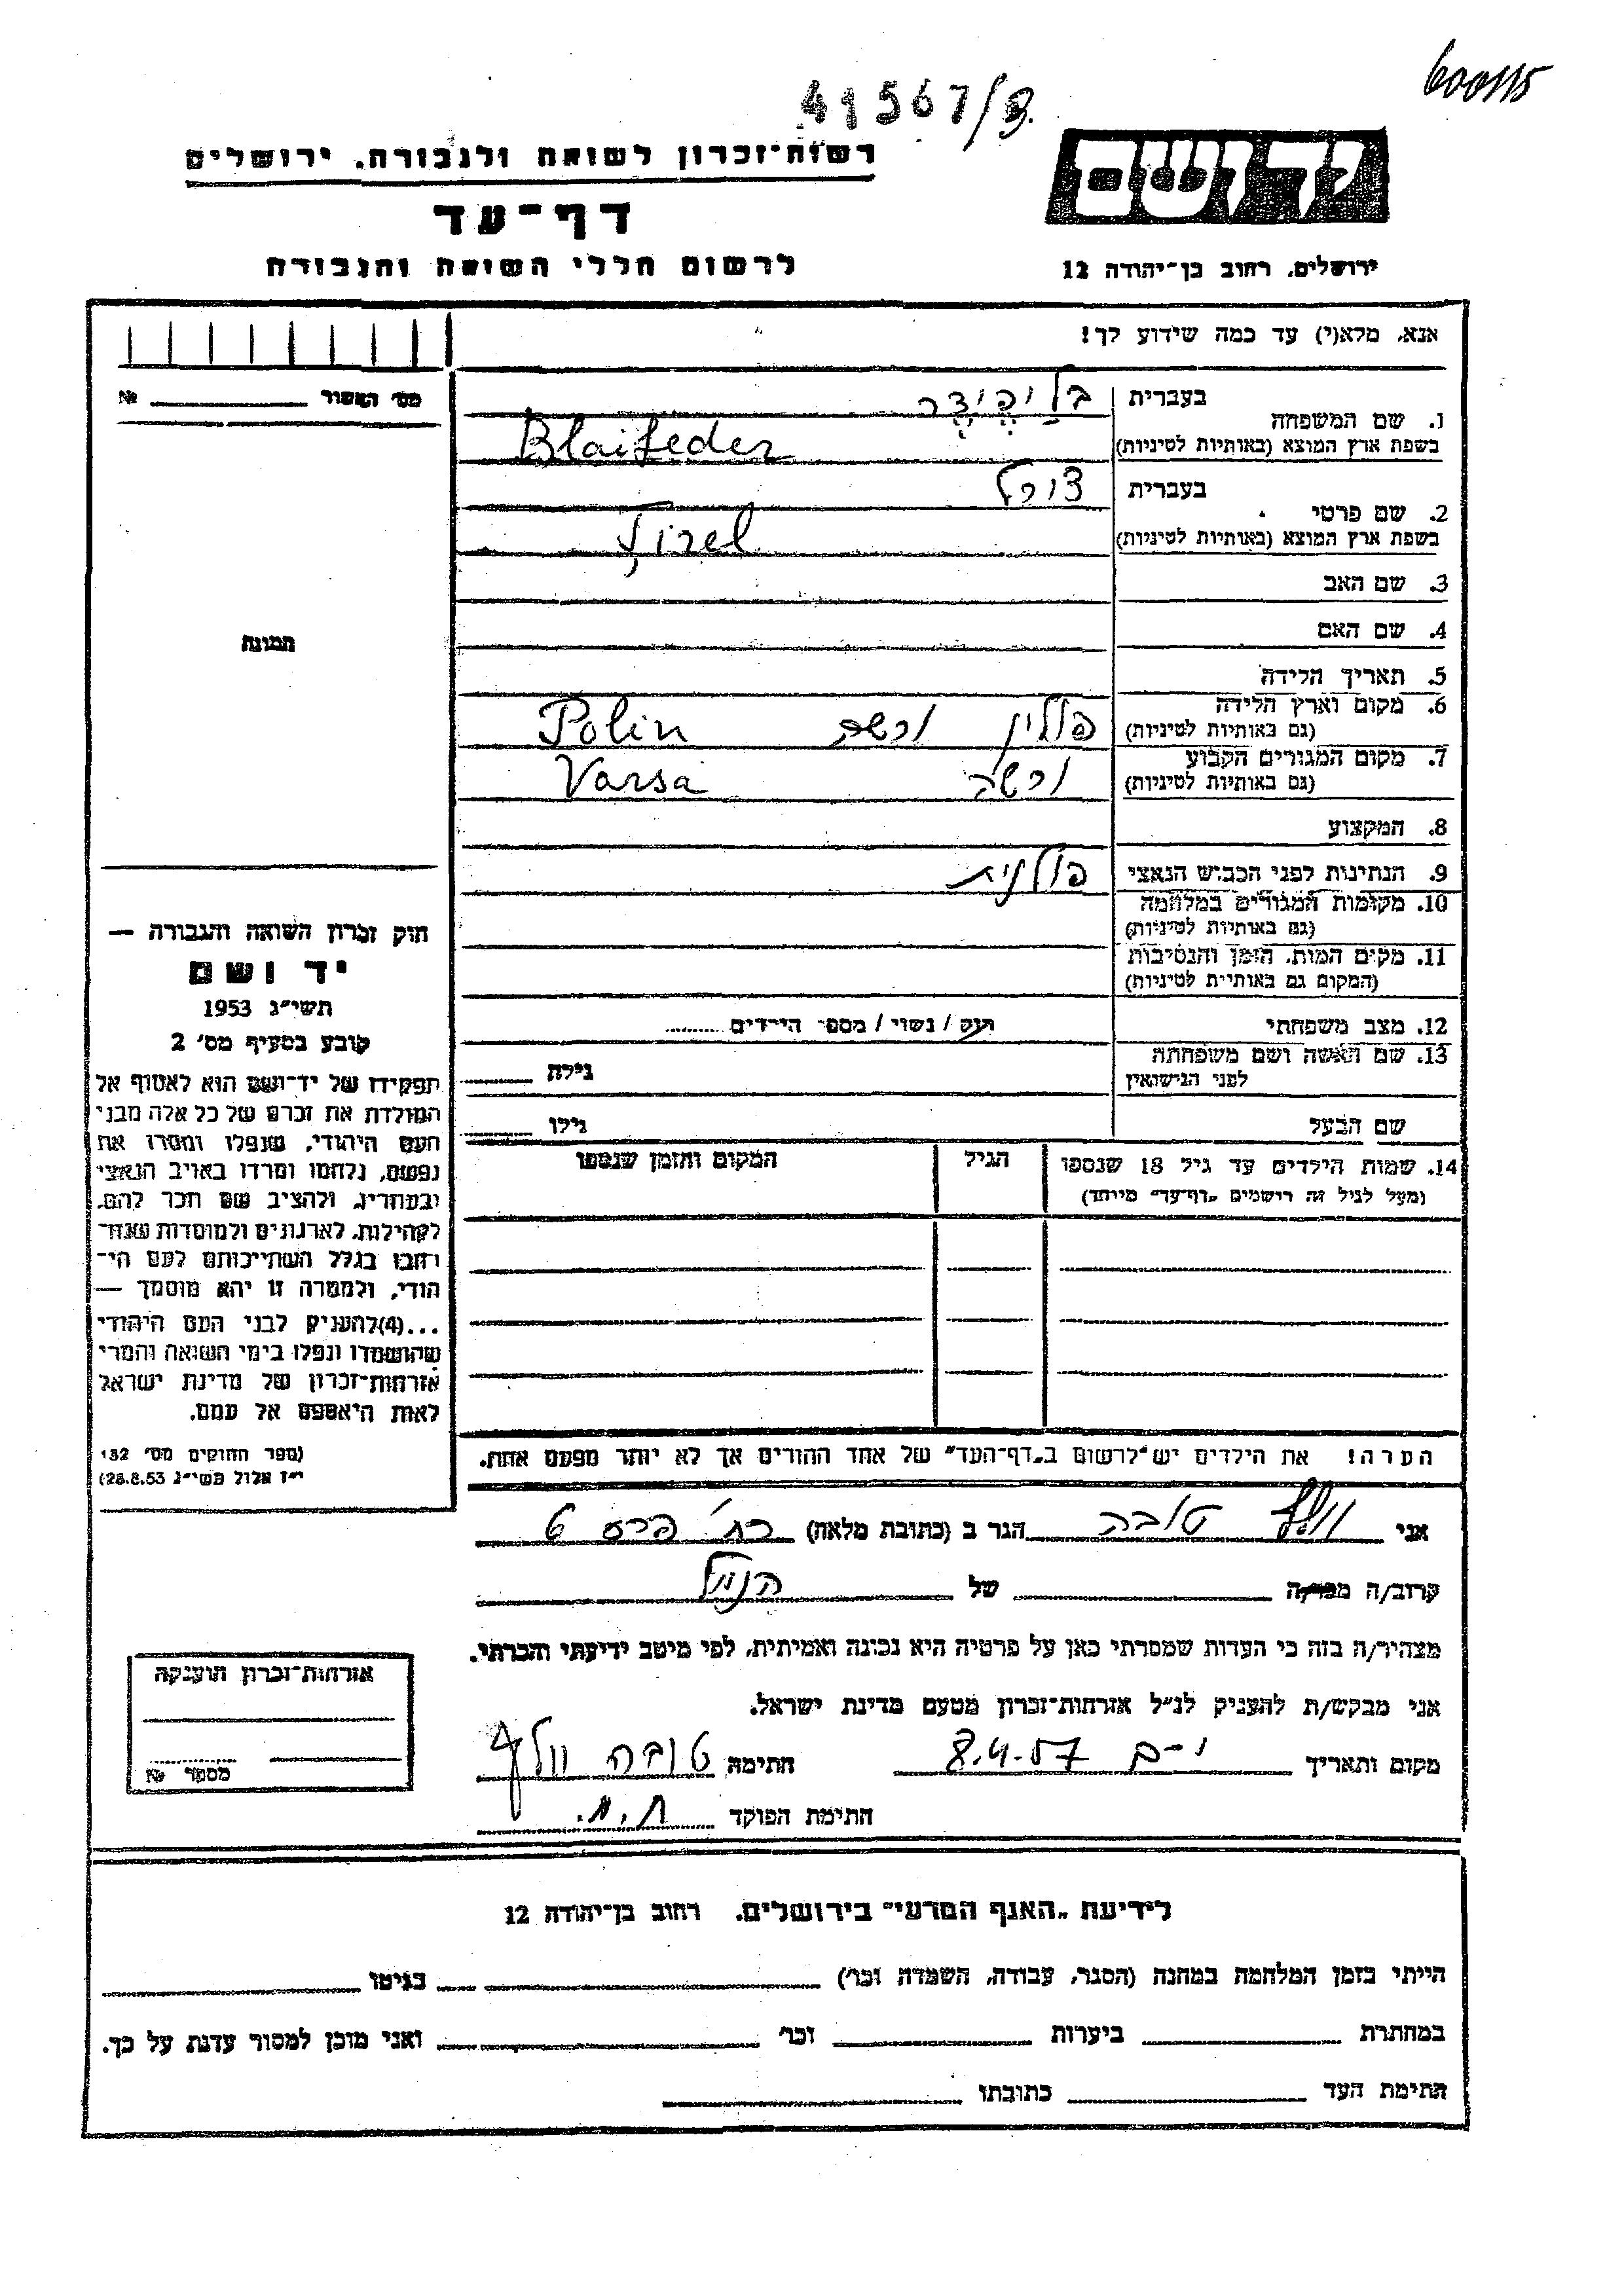 600115
41567/8.
יד ושם
רשות־זכרון לשואה ולגבורה, ירושלים
דף־עד
לרשום חללי השואה והגבורה
ירושלים, רחוב בן־יהודה 12
אנא, מלא(י) עד כמה שידוע לך!
מס׳ האשור № 
1. שם המשפחה
בעברית
בשפת ארץ המוצא (באותיות לטיניות)
Blaifeder
2. שם פרטי
בעברית
בשפת ארץ המוצא (באותיות לטיניות)
3. שם האב
4. שם האם
תמונה
5. תאריך הלידה
6. מקום וארץ הלידה
(גם באותיות לטיניות)
פולין ורשה Polin
7. מקום המגורים הקבוע
(גם באותיות לטיניות)
ורשה Varsa
8. המקצוע
9. הנתינות לפני הכבוש הנאצי פולנית
10. מקומות המגורים במלחמה
(גם באותיות לטיניות)
11. מקום המות, הזמן והנסיבות
(המקום גם באותיות לטיניות)
12. מצב משפחתי רווק / נשוי / מספר הילדים
13. שם האשה ושם משפחתה
לפני הנישואין
גילה
שם הבעל גילו
14. שמות הילדים עד גיל 18 שנספו
(מעל לגיל זה רושמים „דף־עד” מיוחד)
הגיל
המקום והזמן שנספו
חוק זכרון השואה והגבורה —
יד ושם
תשי״ג 1953
קובע בסעיף מס׳ 2
תפקידו של יד־ושם הוא לאסוף אל
המולדת את זכרם של כל אלה מבני
העם היהודי, שנפלו ומסרו את
נפשם, נלחמו ומרדו באויב הנאצי
ובעוזריו, ולהציב שם וזכר להם,
לקהילות, לארגונים ולמוסדות שנח־
רבו בגלל השתייכותם לעם הי־
הודי, ולמטרה זו יהא מוסמך —
...(4)להעניק לבני העם היהודי
שהושמדו ונפלו בימי השואה והמרי
אזרחות־זכרון של מדינת ישראל
לאות היאספם אל עמם.
(ספר החוקים מס׳ 132
י״ז אלול תשי״ג 28.8.53)
הערה! את הילדים יש לרשום ב„דף־העד” של אחד ההורים אך לא יותר מפעם אחת.
אני וולף טובה הגר ב (כתובת מלאה) 6
קרוב/ה מכר/ה של הנ״ל
מצהיר/ה בזה כי העדות שמסרתי כאן על פרטיה היא נכונה ואמיתית, לפי מיטב ידיעתי והכרתי.
אני מבקש/ת להעניק לנ״ל אזרחות־זכרון מטעם מדינת ישראל.
מקום ותאריך י־ם 8.4.57 חתימה טובה וולף
חתימת הפוקד
אזרחות־זכרון הוענקה
מספר №
לידיעת „האגף המדעי” בירושלים, רחוב בן־יהודה 12
הייתי בזמן המלחמה במחנה (הסגר, עבודה, השמדה וכר׳) בגיטו
במחתרת ביערות וכר׳ ואני מוכן למסור עדות על כך.
חתימת העד כתובתו